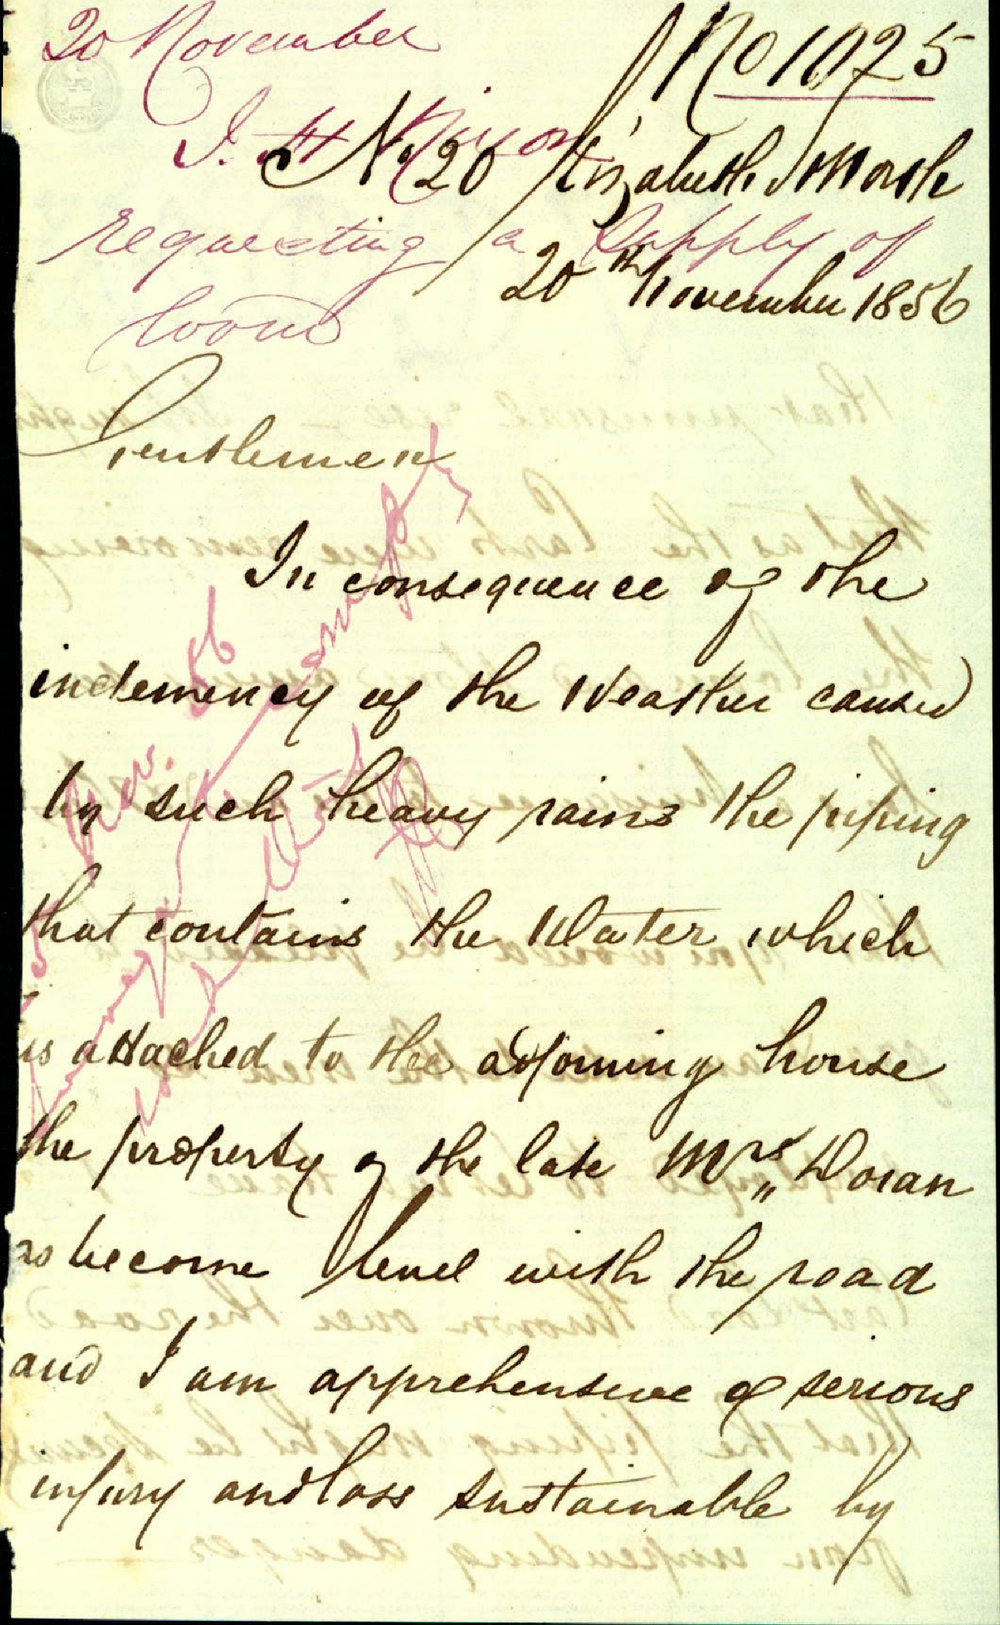 20 November
No 1025
J. H Nixon
No 20 Elizabeth North
requesting a Supply of
20th November 1856
loom
Gentlemen
In consequence of the
indemency of the Weather caused
by such heavy rains the piping
that contains the Water which
is attached to the adjoining house
the property of the late Mrs Doran
as become level with the road
and I am apprehensive of serious
injury and loss sustainable by